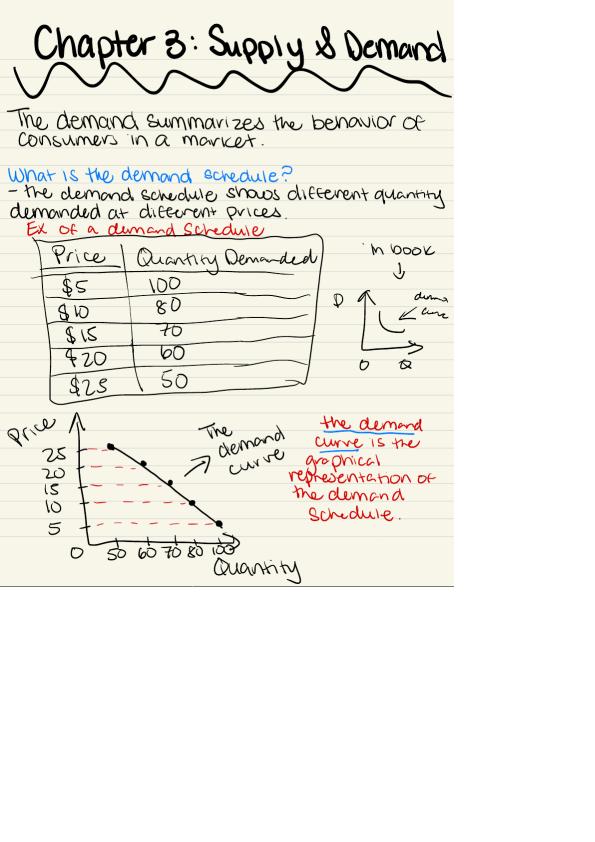 Chapter 3: Supply & Demand
The demand summarizes the behavior of
consumers in a market.
What is the demand schedule?
- the demand schedule shows different quantity
demanded at different prices.
Ex of a demand schedule
Price Quantity Demanded
$5 100
$10 80
$15 70
$20 60
$25 50
in book
D
curve
0 Q
Price
25
20
15
10
5
0 50 60 70 80 100
Quantity
The
demand
curve
the demand
curve is the
graphical
representation of
the demand
schedule.